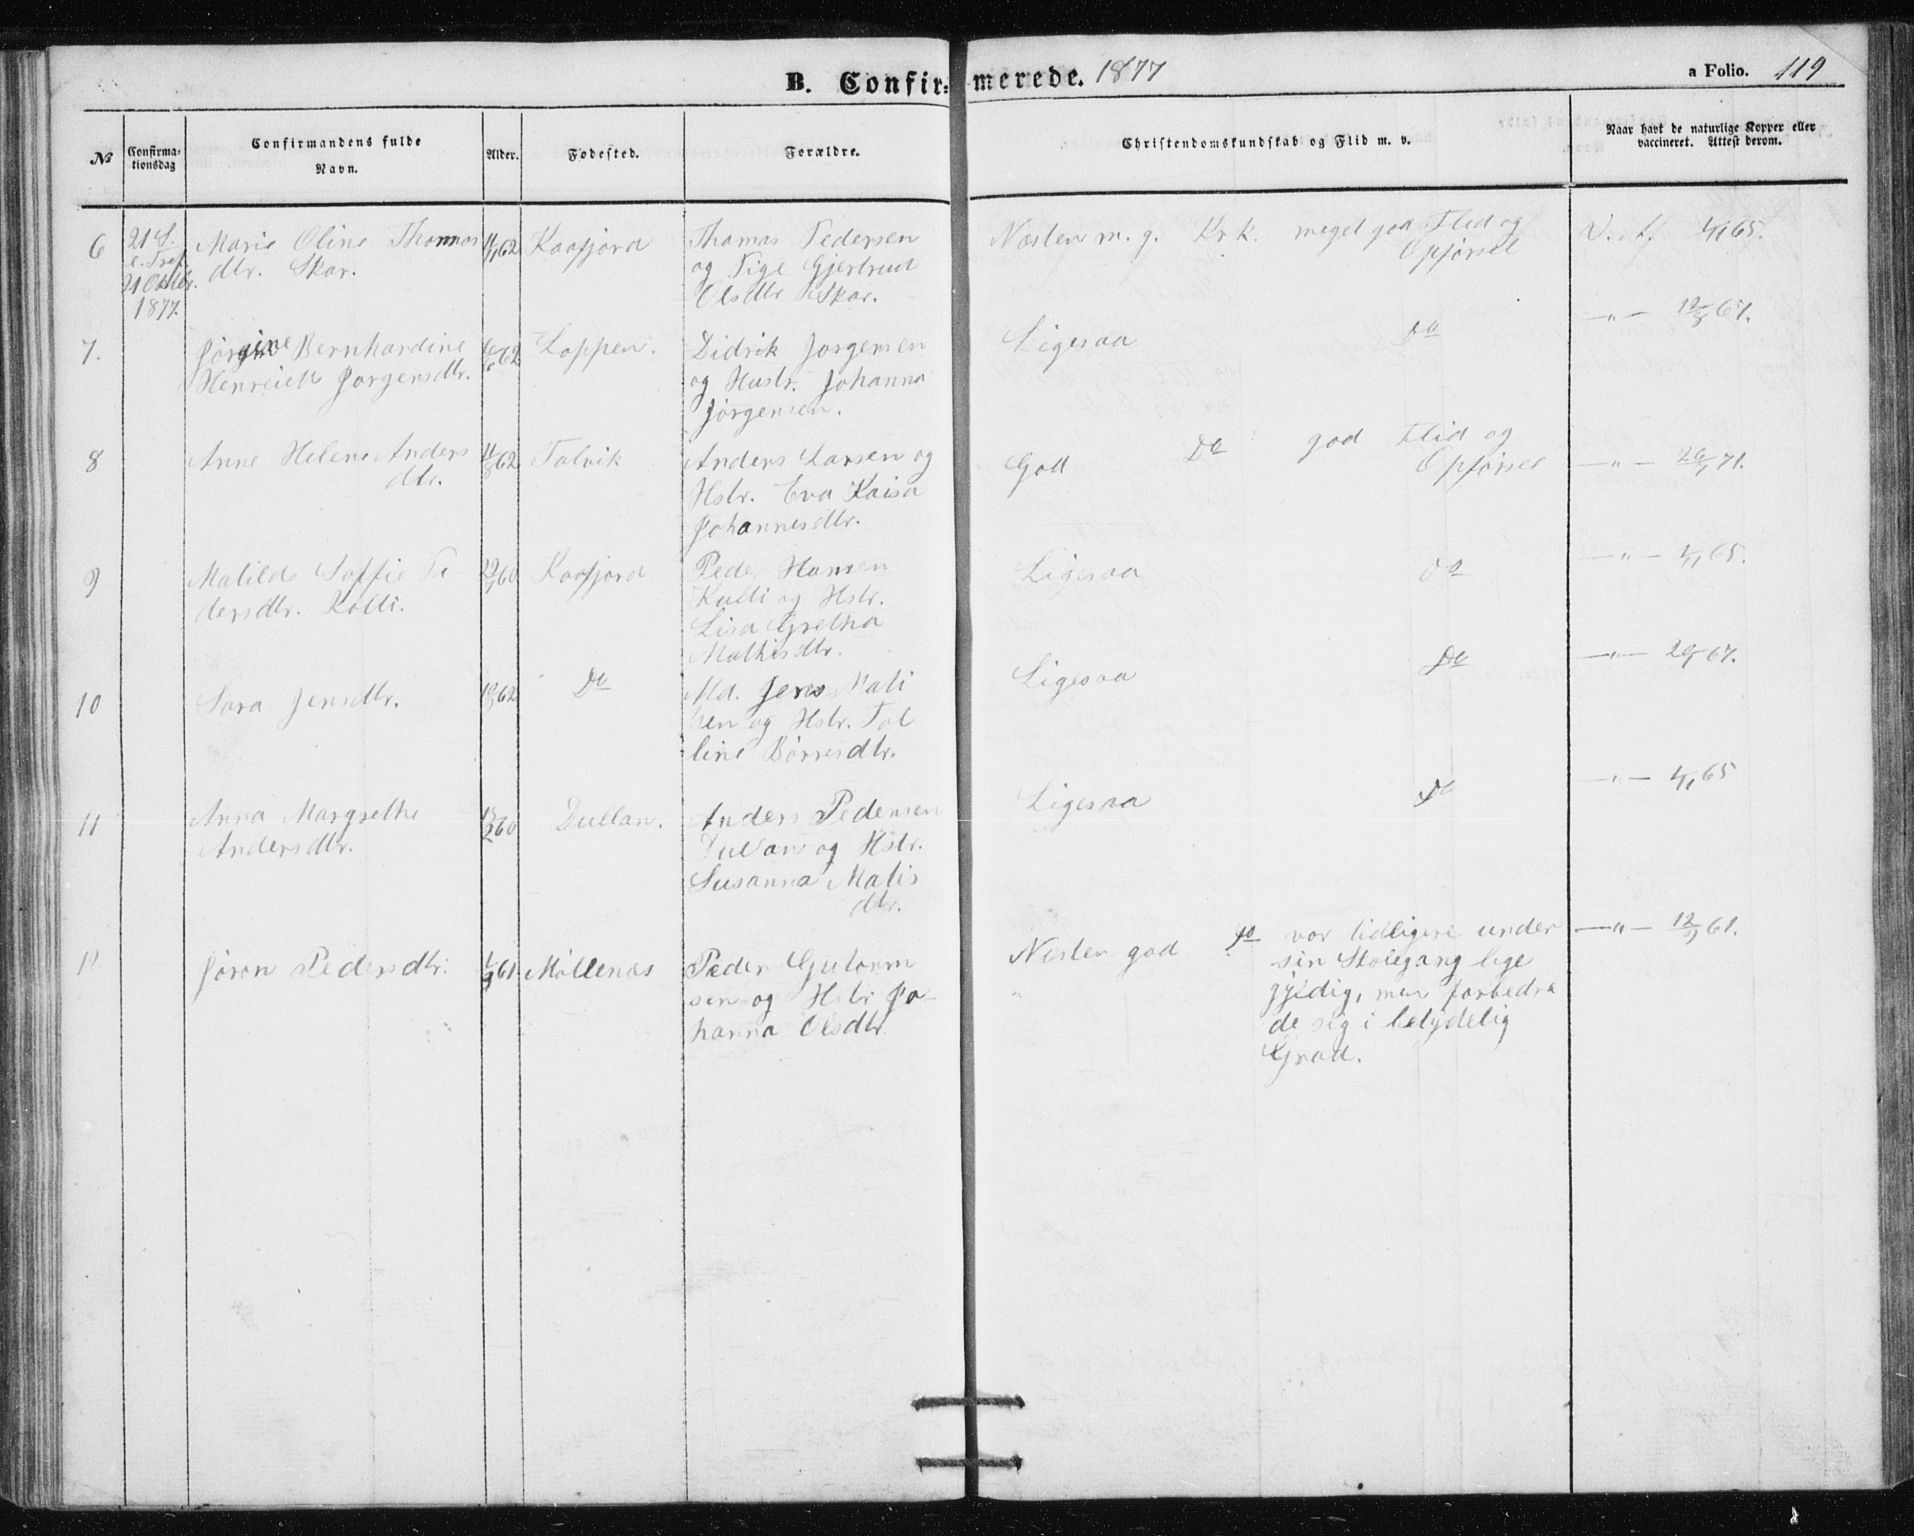 B. Confir= merede. 1877
a Folio. 119
No
Confirma-
tionsdag
Confirmandens fulde
Navn.
Alder.
Fødested.
Forældre.
Christendomskundskab og Flid m. v.
Naar havt de naturlige Kopper eller
vaccineret. Attest derom.
6
21 S.
e. Tref.
21 Oktbr.
1877.
Marie Oline Thomas
dtr. Skar.
62
Kaafjord
Thomas Pedersen
og Pige Gjertrud
Olsdtr Skar.
Næsten m. g. Kr. k. meget god Flid og
Opførsel
V. A. 4/1 65.
7.
Jørgine Bernhardine
Henreich Jørgensdtr.
62
Loppen.
Didrik Jørgensen
og Hustr. Johanna
Jørgensen.
Ligesaa
Do
—"— 12/8 67.
8
Anne Helene Anders
dtr.
11/8 62
Talvik
Anders Larsen og
Hstr. Eva Kaisa
Johannesdtr.
God Do god Flid og
Opførsel
—"— 26/1 71.
9
Matilde Soffie Pe
dersdtr. Kolti.
60
Kaafjord
Peder Hansen
Kulti og Hstr.
Lisa Gretha
Mathisdtr.
Ligesaa
Do
—"— 4/1 65.
10
Sara Jensdtr.
62
Do
Jens Mati
sen og Hstr. Tol
line Børresdtr.
Ligesaa
Do
—"— 67.
11
Anna Margrethe
Andersdtr.
60
Dullan.
Anders Pedersen
Dullan og Hstr.
Susanna Matis
dtr.
Ligesaa
Do
—"— 4/1 65
12
Jøran Pedersdtr.
61.
Møllenæs
Peder Gutorm
sen og Hstr Jo-
hanna Olsdtr
Næsten god Do var tidligere under
sin Skolegang lige
gyldig, men forbedre
de sig i betydelig
Grad.
—"— 12/9 61.